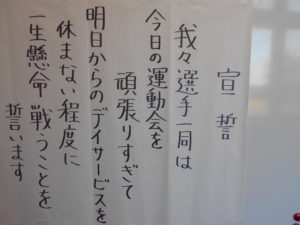 宣誓
我々選手一同は
今日の運動会を
頑張りすぎて
明日からのデイサービスを
休まない程度に
一生懸命戦うことを
誓います